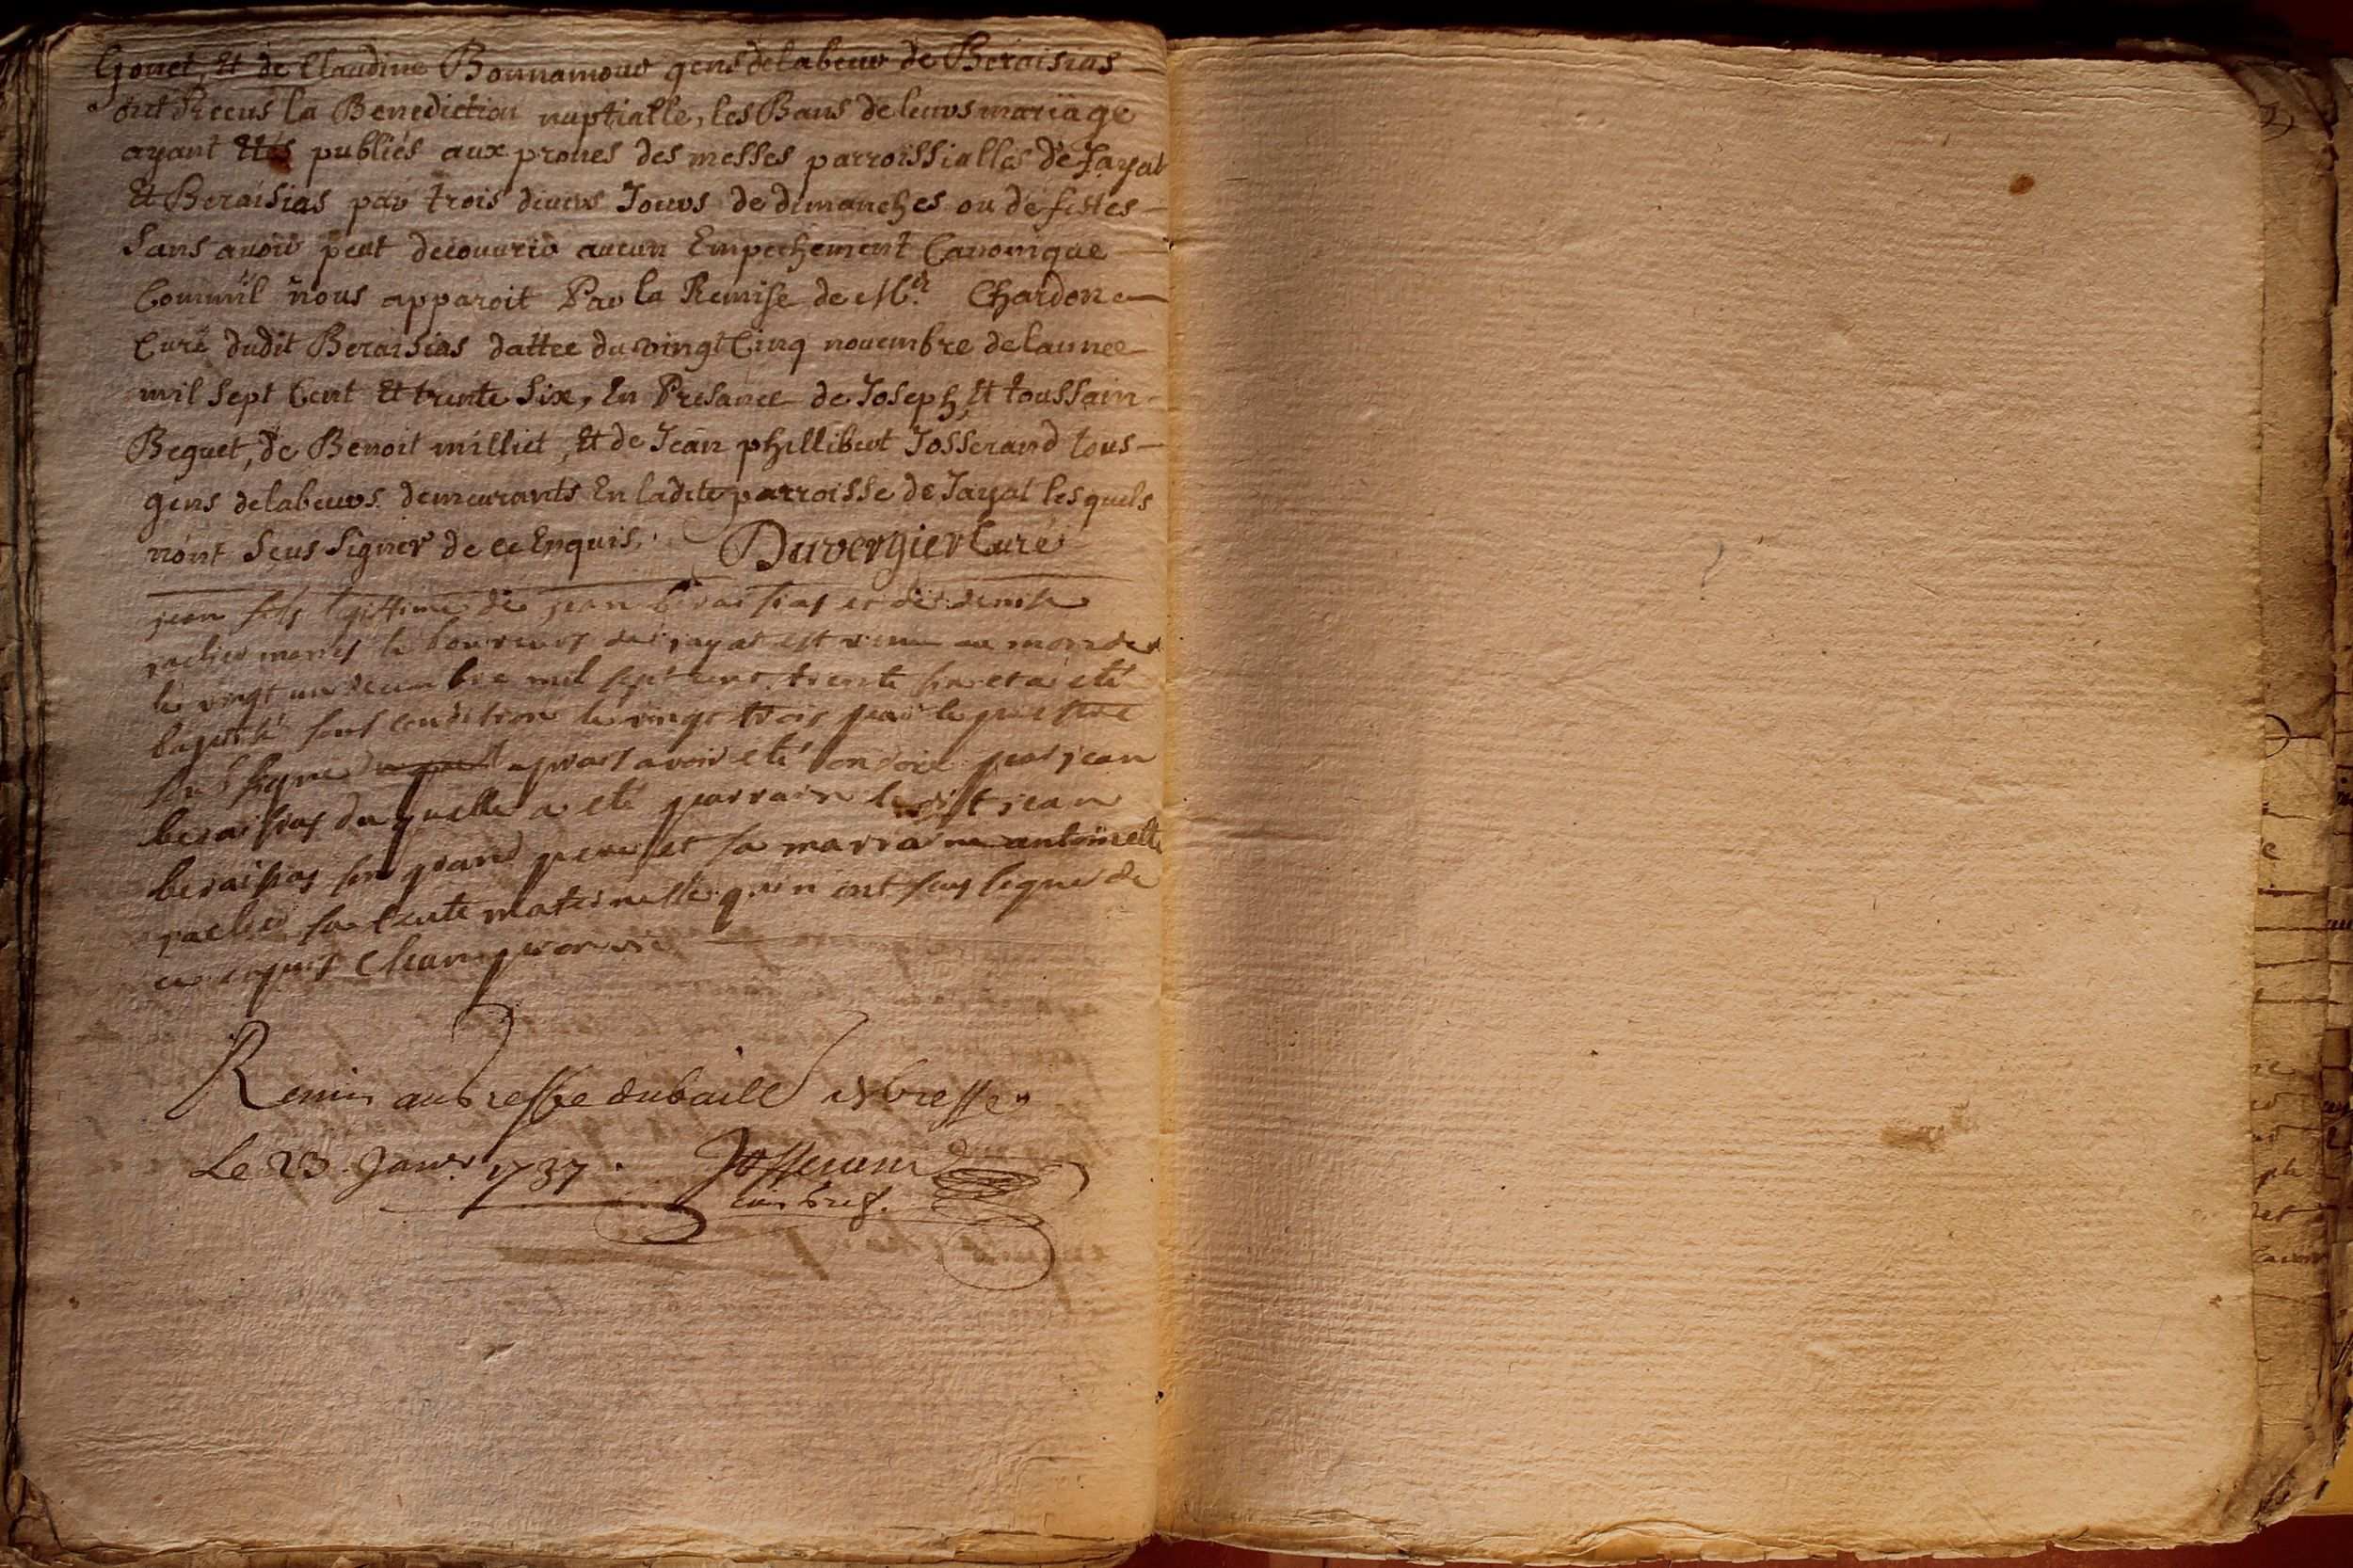 Gonet, Et de Claudine Bonnamour gens delabeur de Beraisias
ont Receus la Benediction nuptialle, les Bans de leurs mariage
ayant Ettés publiés aux prones des messes parroissialles de Jayat
Et Beraisias par trois divers Jours de dimanches ou de festes
Sans avoir peut decouvrir aucun Empechement Canonique
Comm'il nous apparoit Par la Remise de Mr. Chardon
Curé dudit Beraisias dattee du vingt Cinq novembre de lannee
mil Sept Cent Et trente Six, En Presance de Joseph, Et toussain
Beguet, de Benoit milliet, Et de Jean phillibert Josserand tous
gens delabeurs demeurants En ladite parroisse de Jayat lesquels
nont Sceus Signer de ce Enquis. Duvergier Curé
jean fils legittime de jean beraisias et de denise
mariés laboureurs de jayat est venu au monde
le vingt un decembre mil sept cent trente six et a eté
baptisé sous condition le vingt trois par le prestre
sous signé aprast avoir eté ondoié par jean
beraisias duquelle a eté parrain ledit jean
beraisias son grand pere et sa marraine antoinette
sa tante maternelle qui n'ont sceus signe de
ce enquis
Remis au Greffe du baille de bresse
Le 23 Janvr. 1737. Josserand